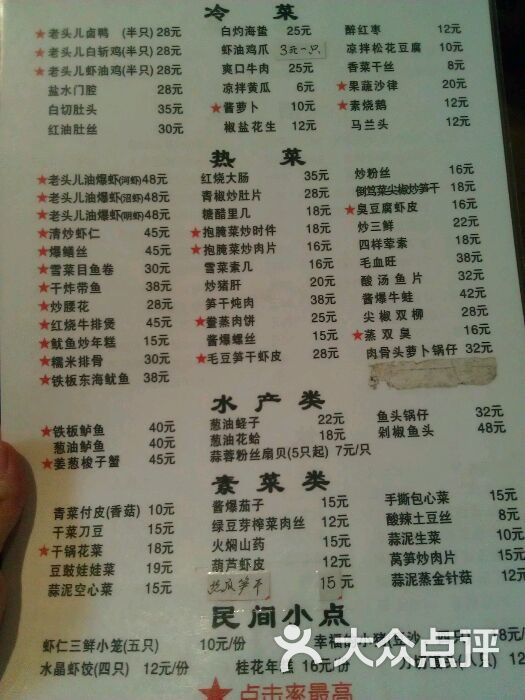 冷 菜
★老头儿卤鸭 (半只) 28元 白灼海蛰 25元 醉红枣 12元
★老头儿白斩鸡(半只) 28元 虾油鸡爪 3元一只 凉拌松花豆腐 10元
★老头儿虾油鸡(半只) 28元 爽口牛肉 25元 香菜干丝 8元
盐水门腔 28元 凉拌黄瓜 6元 ★果蔬沙律 20元
白切肚头 35元 ★酱萝卜 10元 ★素烧鹅 12元
红油肚丝 30元 椒盐花生 12元 马兰头 12元
热 菜
★老头儿油爆虾(河虾) 48元 红烧大肠 35元 炒粉丝 16元
★老头儿油爆虾(沼虾) 48元 青椒炒肚片 28元 倒笃菜尖椒炒笋干 18元
★老头儿油爆虾(明虾) 48元 糖醋里几 18元 ★臭豆腐虾皮 16元
★清炒虾仁 45元 ★抱腌菜炒时件 18元 炒三鲜 22元
★爆鳝丝 45元 ★抱腌菜炒肉片 16元 四样荤素 18元
★雪菜目鱼卷 30元 雪菜素几 18元 毛血旺 38元
★干炸带鱼 38元 炒猪肝 20元 酸汤鱼片 32元
★炒腰花 28元 笋干炖肉 38元 酱爆牛蛙 42元
★红烧牛排煲 45元 ★鲞蒸肉饼 25元 尖椒双柳 28元
★鱿鱼炒年糕 15元 酱爆螺丝 15元 ★蒸双臭 16元
★糯米排骨 30元 ★毛豆笋干虾皮 28元 肉骨头萝卜锅仔 32元
★铁板东海鱿鱼 38元
水 产 类
★铁板鲈鱼 40元 葱油蛏子 22元 鱼头锅仔 32元
葱油鲈鱼 40元 葱油花蛤 18元 剁椒鱼头 48元
★姜葱梭子蟹 45元 蒜蓉粉丝扇贝(5只起) 7元/只
素 菜 类
青菜付皮(香菇) 10元 酱爆茄子 15元 手撕包心菜 15元
干菜刀豆 15元 绿豆芽榨菜肉丝 12元 酸辣土豆丝 8元
★干锅花菜 18元 火焖山药 15元 蒜泥生菜 10元
豆鼓娃娃菜 19元 葫芦虾皮 12元 莴笋炒肉片 15元
蒜泥空心菜 15元 丝瓜笋干 15元 蒜泥蒸金针菇 12元
民间小点
虾仁三鲜小笼(五只) 10元/份 幸福 8元
水晶虾饺(四只) 12元/份 桂花年糕 16元/份 元/份
★点击率最高
大众点评